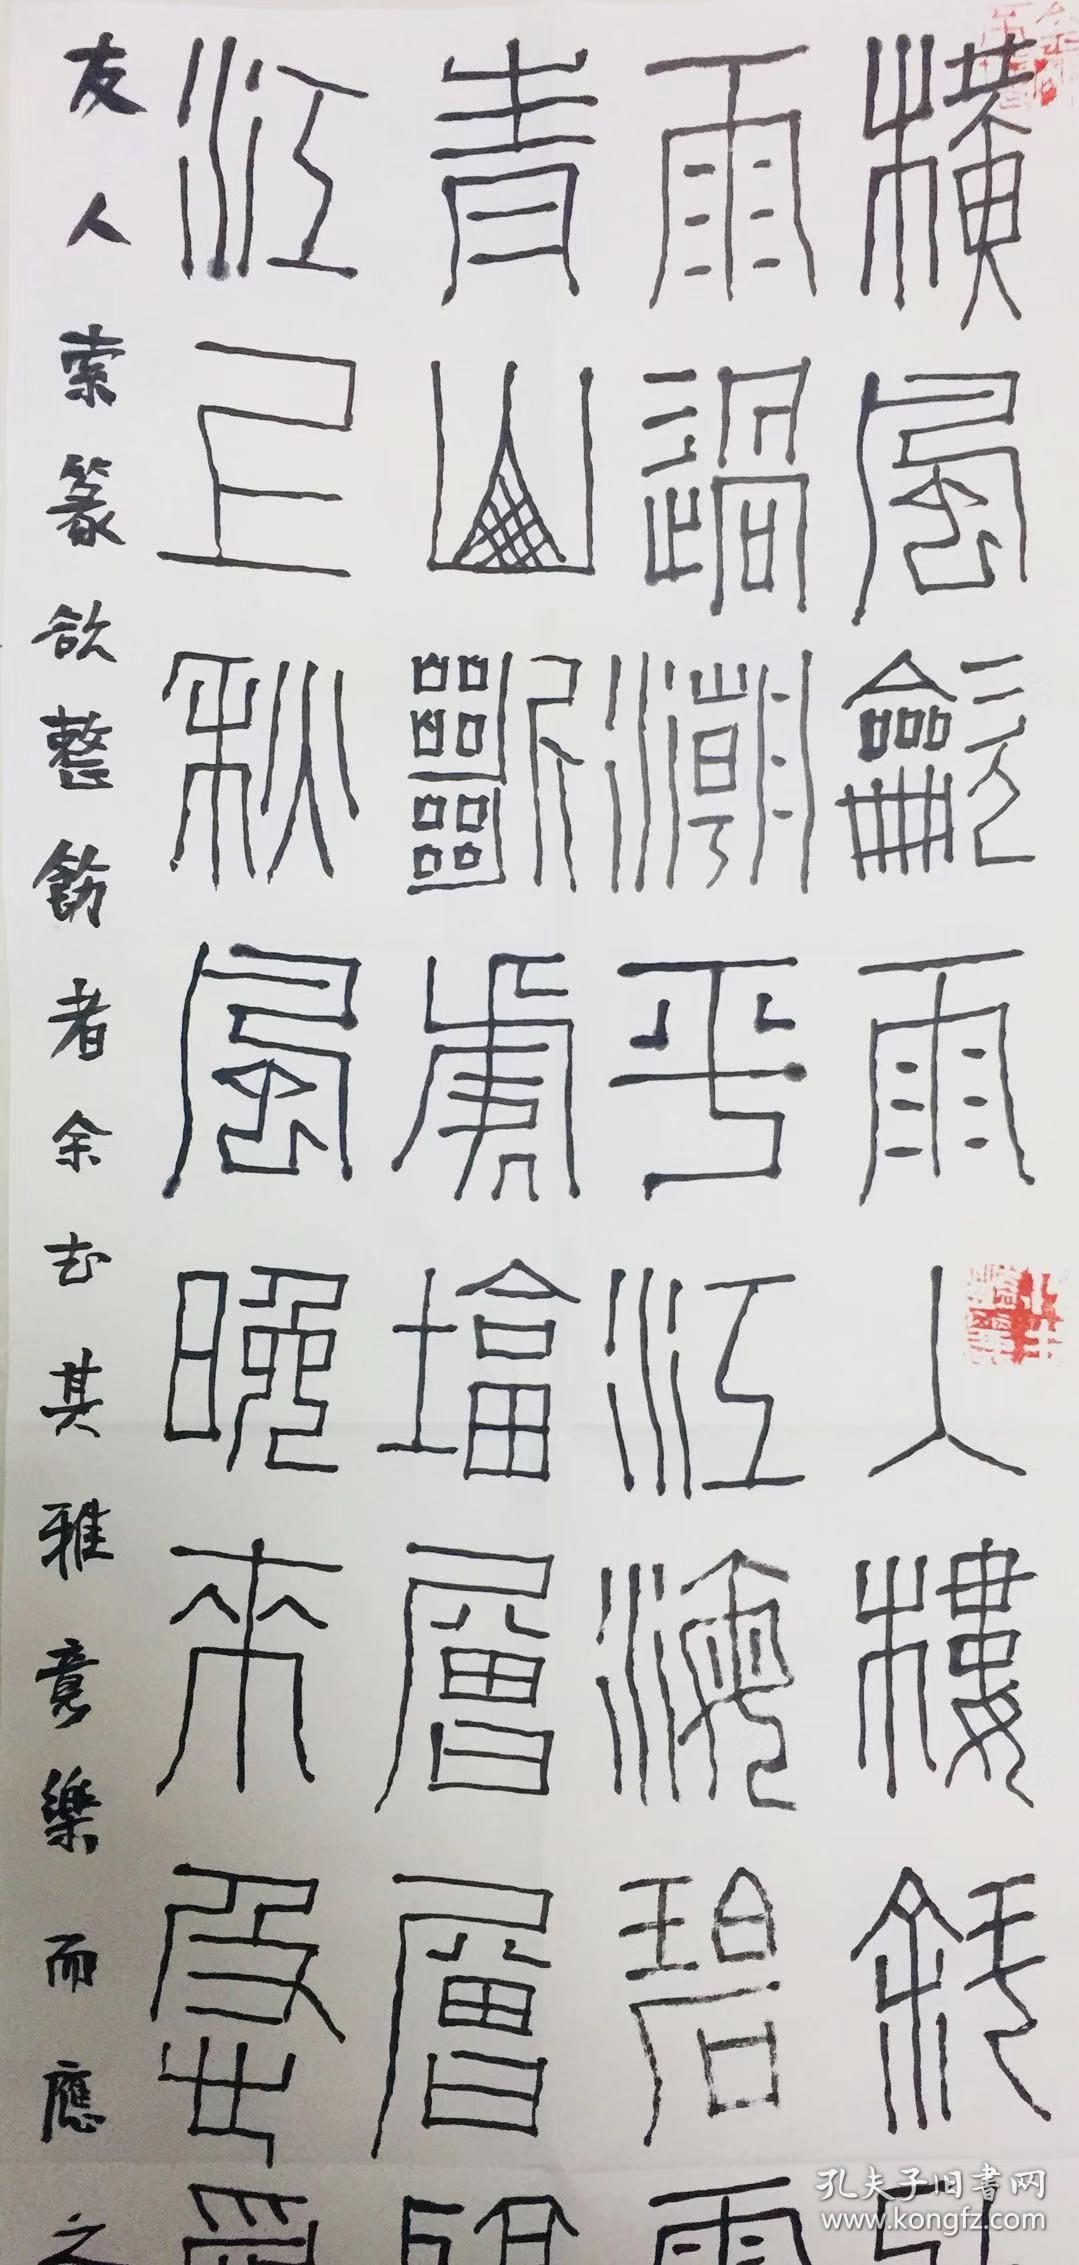 横風龡雨入樓斜
雨過潮平江海碧
青山斷處塔層層
江上秋風晚來急
友人索篆欲整飭者余其雅意樂而應之
孔夫子旧書网
www.kongfz.com